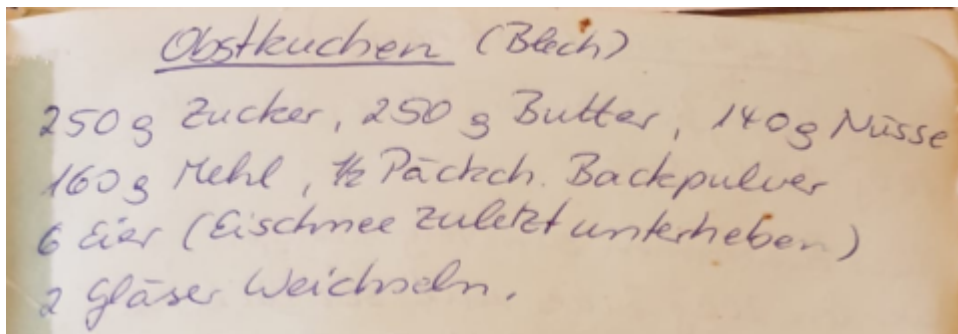 Obstkuchen (Blech)
250 g Zucker, 250 g Butter, 140g Nüsse
160g Mehl, ½ Päckch. Backpulver
6 Eier (Eischnee zuletzt unterheben)
2 Gläser Weichseln.